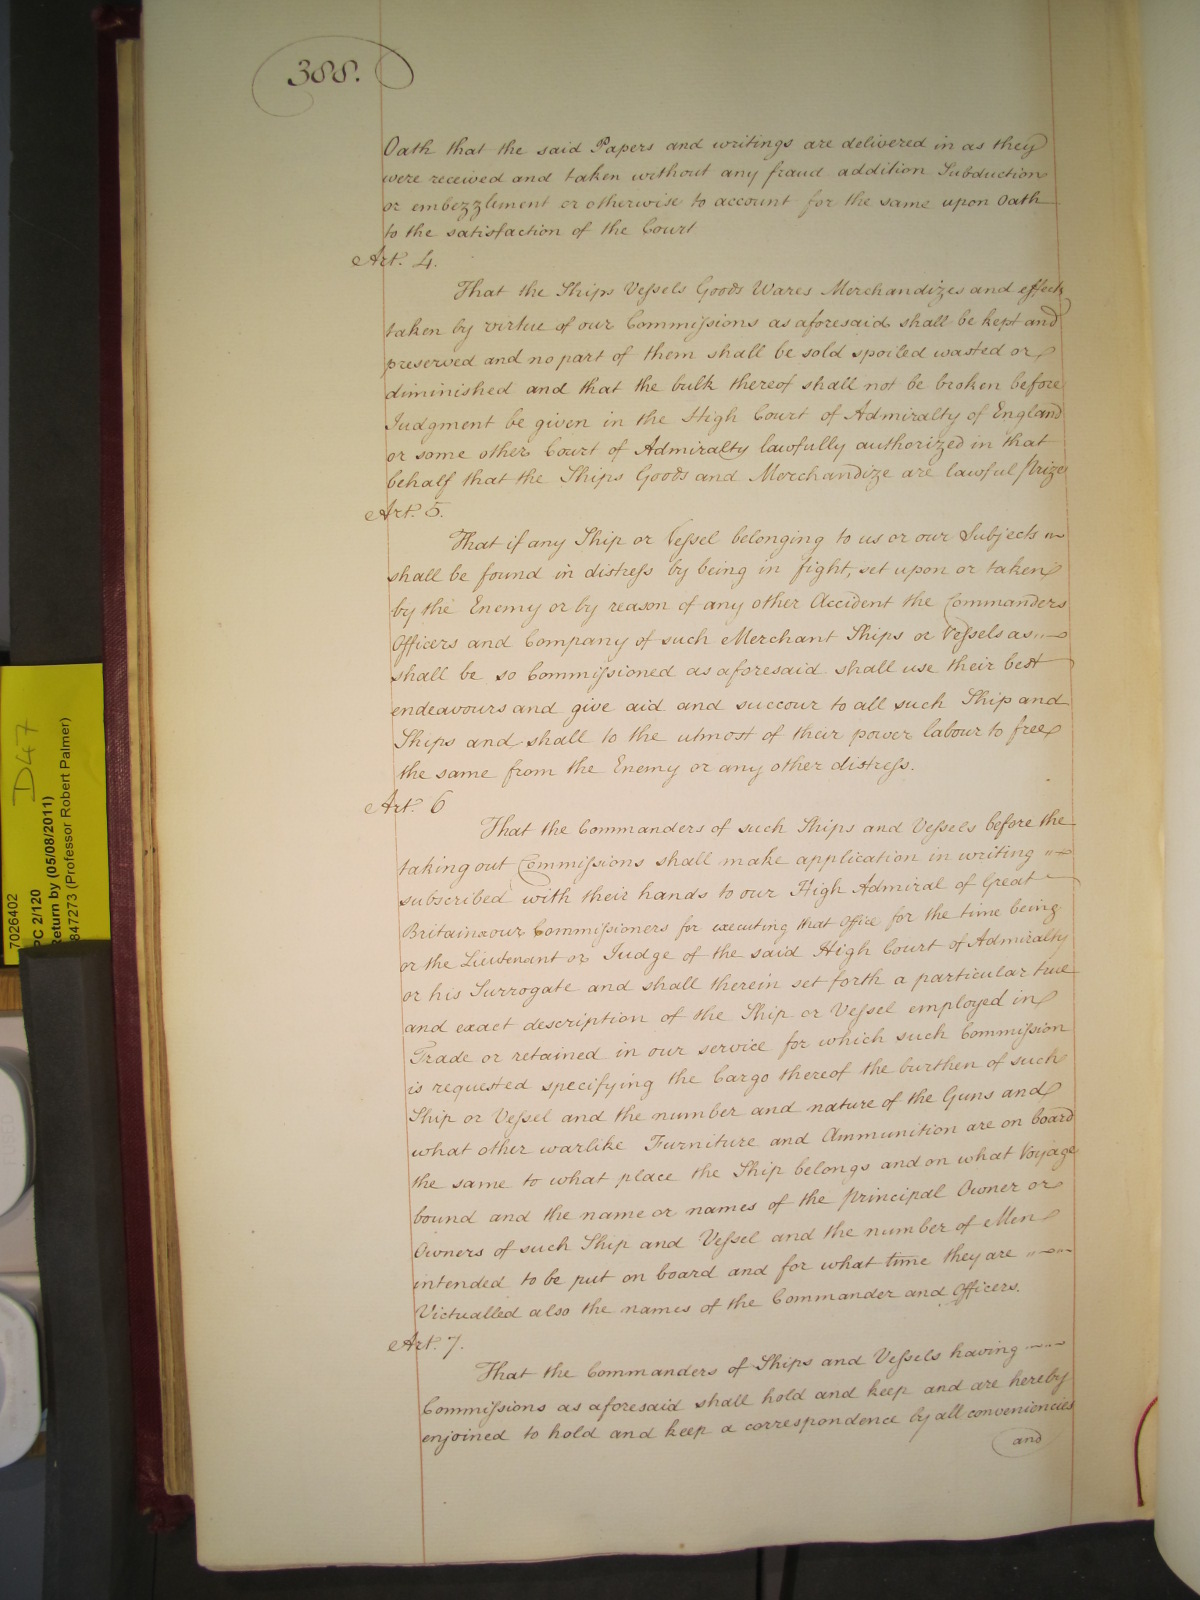 388.
Oath that the said Papers and writings are delivered in as they
were received and taken without any fraud addition Subduction
or embezzlement or otherwise to account for the same upon Oath
to the satisfaction of the Court
Art. 4.
That the Ships Vessels Goods Wares Merchandizes and effects
taken by virtue of our Commissions as aforesaid shall be kept and
preserved and no part of them shall be sold spoiled wasted or
diminished and that the bulk thereof shall not be broken before
Judgment be given in the High Court of Admiralty of England
or some other Court of Admiralty lawfully authorized in that
behalf that the Ships Goods and Merchandize are lawful Prize
Art. 5.
That if any Ship or Vessel belonging to us or our Subjects
shall be found in distress by being in fight, set upon or taken
by the Enemy or by reason of any other Accident the Commanders
Officers and Company of such Merchant Ships or Vessels as
shall be so Commissioned as aforesaid shall use their best
endeavours and give aid and succour to all such Ship and
Ships and shall to the utmost of their power labour to free
the same from the Enemy or any other distress.
Art. 6
That the Commanders of such Ships and Vessels before the
taking out Commissions shall make application in writing
subscribed with their hands to our High Admiral of Great
Britain or our Commissioners for executing that Office for the time being
or the Lieutenant or Judge of the said High Court of Admiralty
or his Surrogate and shall therein set forth a particular true
and exact description of the Ship or Vessel employed in
Trade or retained in our service for which such Commission
is requested specifying the Cargo thereof the burthen of such
Ship or Vessel and the number and nature of the Guns and
what other warlike Furniture and Ammunition are on board
the same to what place the Ship belongs and on what Voyage
bound and the name or names of the Principal Owner or
Owners of such Ship and Vessel and the number of Men
intended to be put on board and for what time they are
Victualled also the names of the Commander and Officers.
Art. 7.
That the Commanders of Ships and Vessels having
Commissions as aforesaid shall hold and keep and are hereby
enjoined to hold and keep a correspondence by all conveniencies
and
7026402
D47
PC 2/120
Return by (05/08/2011)
847273 (Professor Robert Palmer)